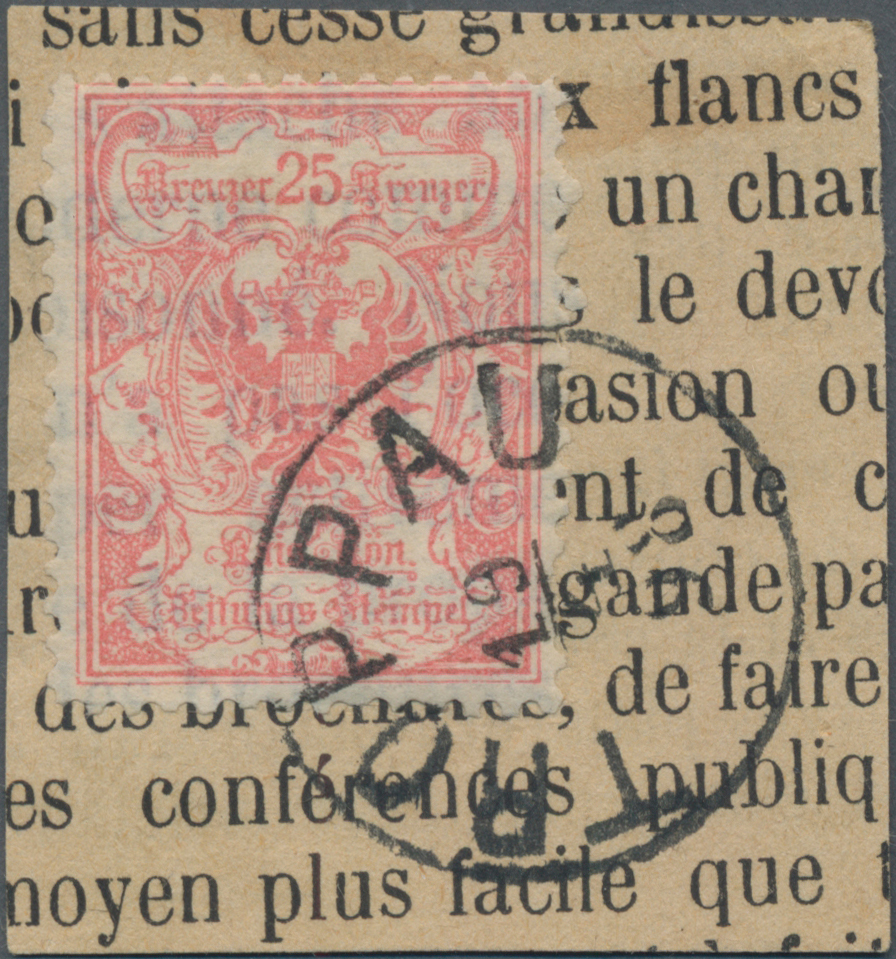 sans cesse
x flancs
un char
le devo
asion ou
u nt de c
gande pa
des brochures, de faire
es conférences publiq
moyen plus facile que
Kreuzer 25 Kreuzer
Kais. Kön.
Zeitungs-Stempel
TROPPAU
19